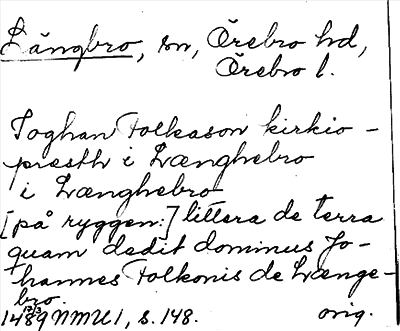 Långbro, sn, Örebro hd,
Örebro l.
Joghan Folkason kirkio-
præsth i Længhebro
i Længhebro
[på ryggen:] littera de terra
quam dedit dominus Jo-
hannes Folkonis de Længe-
bro.
1489 12/3 NMU 1, s. 148. orig.